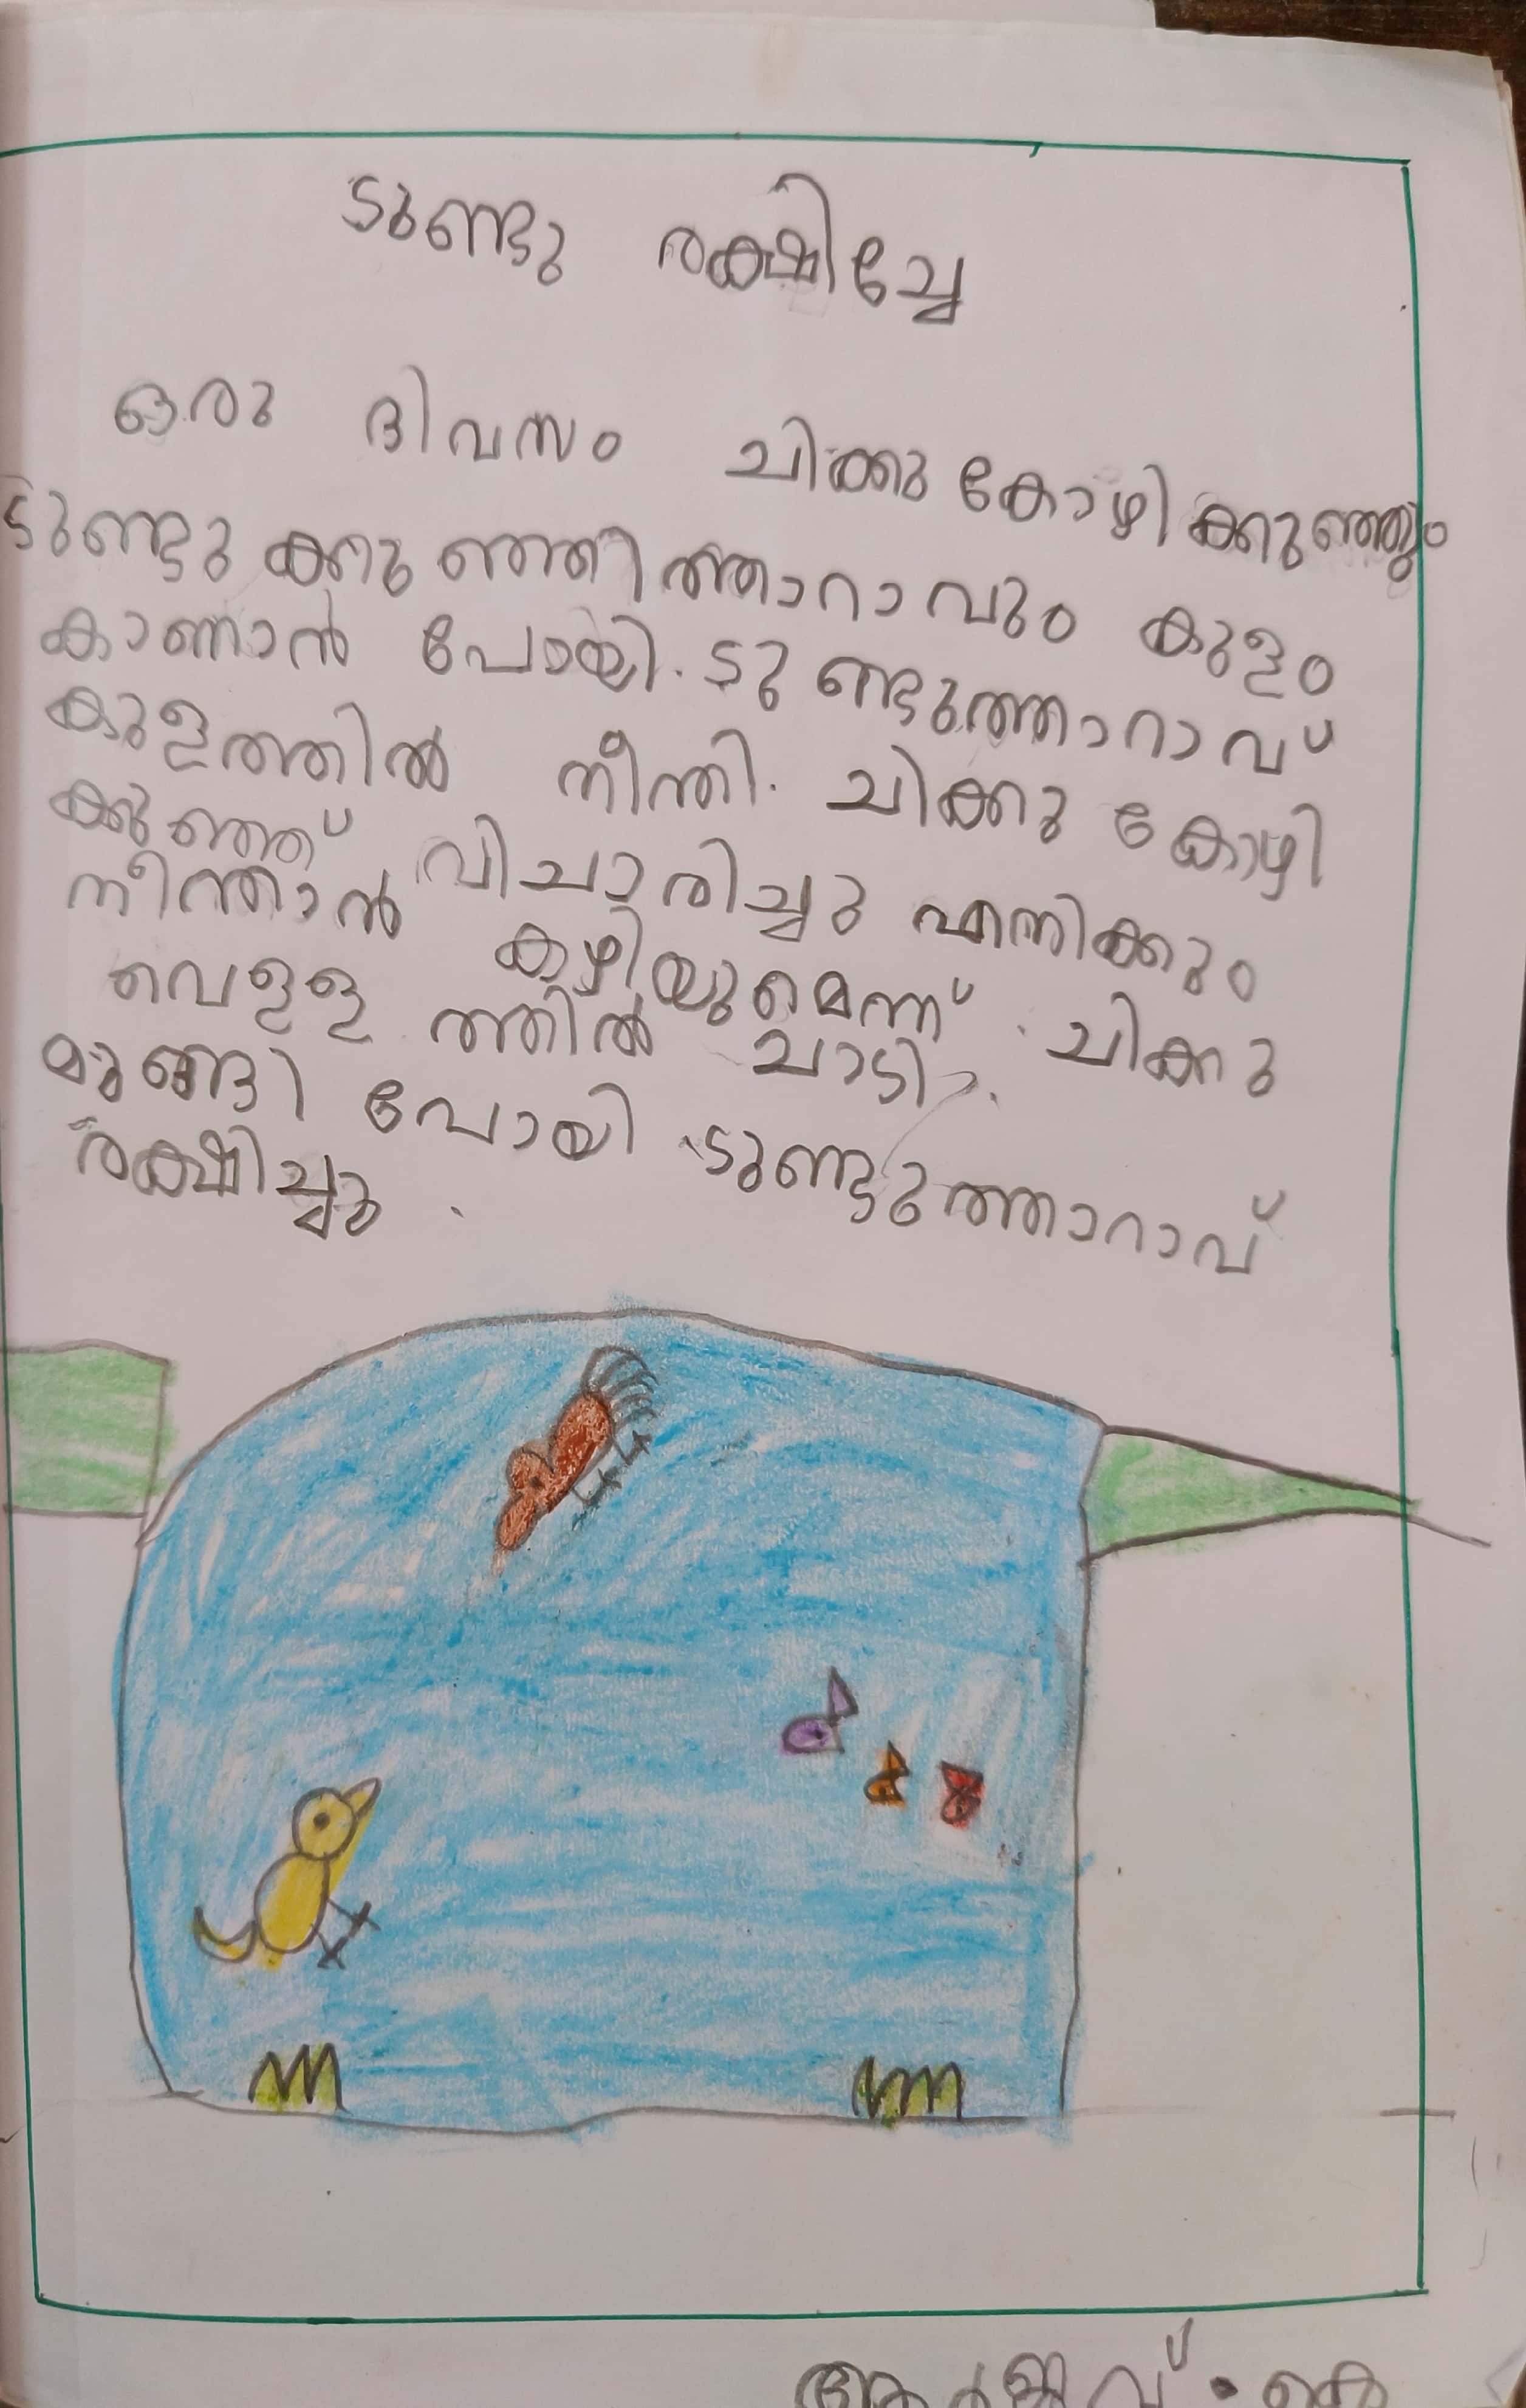 ടുണ്ടു രക്ഷിച്ചേ
ഒരു ദിവസം ചിക്കു കോഴിക്കുഞ്ഞും
ടുണ്ടു ക്കുഞ്ഞിത്താറാവും കുളം
കാണാൻ പോയി. ടുണ്ടുത്താറാവ്
കുളത്തിൽ നീന്തി. ചിക്കു കോഴി
ക്കുഞ്ഞ് വിചാരിച്ചു എനിക്കും
നീന്താൻ കഴിയുമെന്ന്. ചിക്കു
വെള്ളത്തിൽ ചാടി.
മുങ്ങി പോയി ടുണ്ടുത്താറാവ്
രക്ഷിച്ചു.